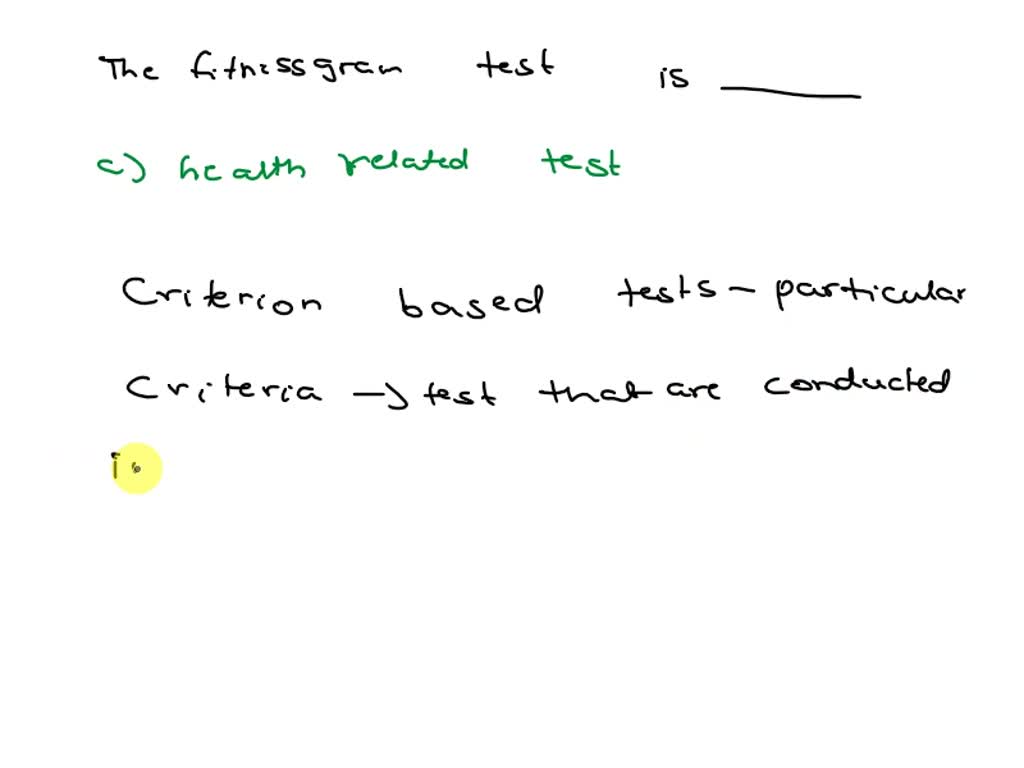 The fitnissgram test is
c) health related test
Criterion based tests - particular
Criteria → test that are conducted
i